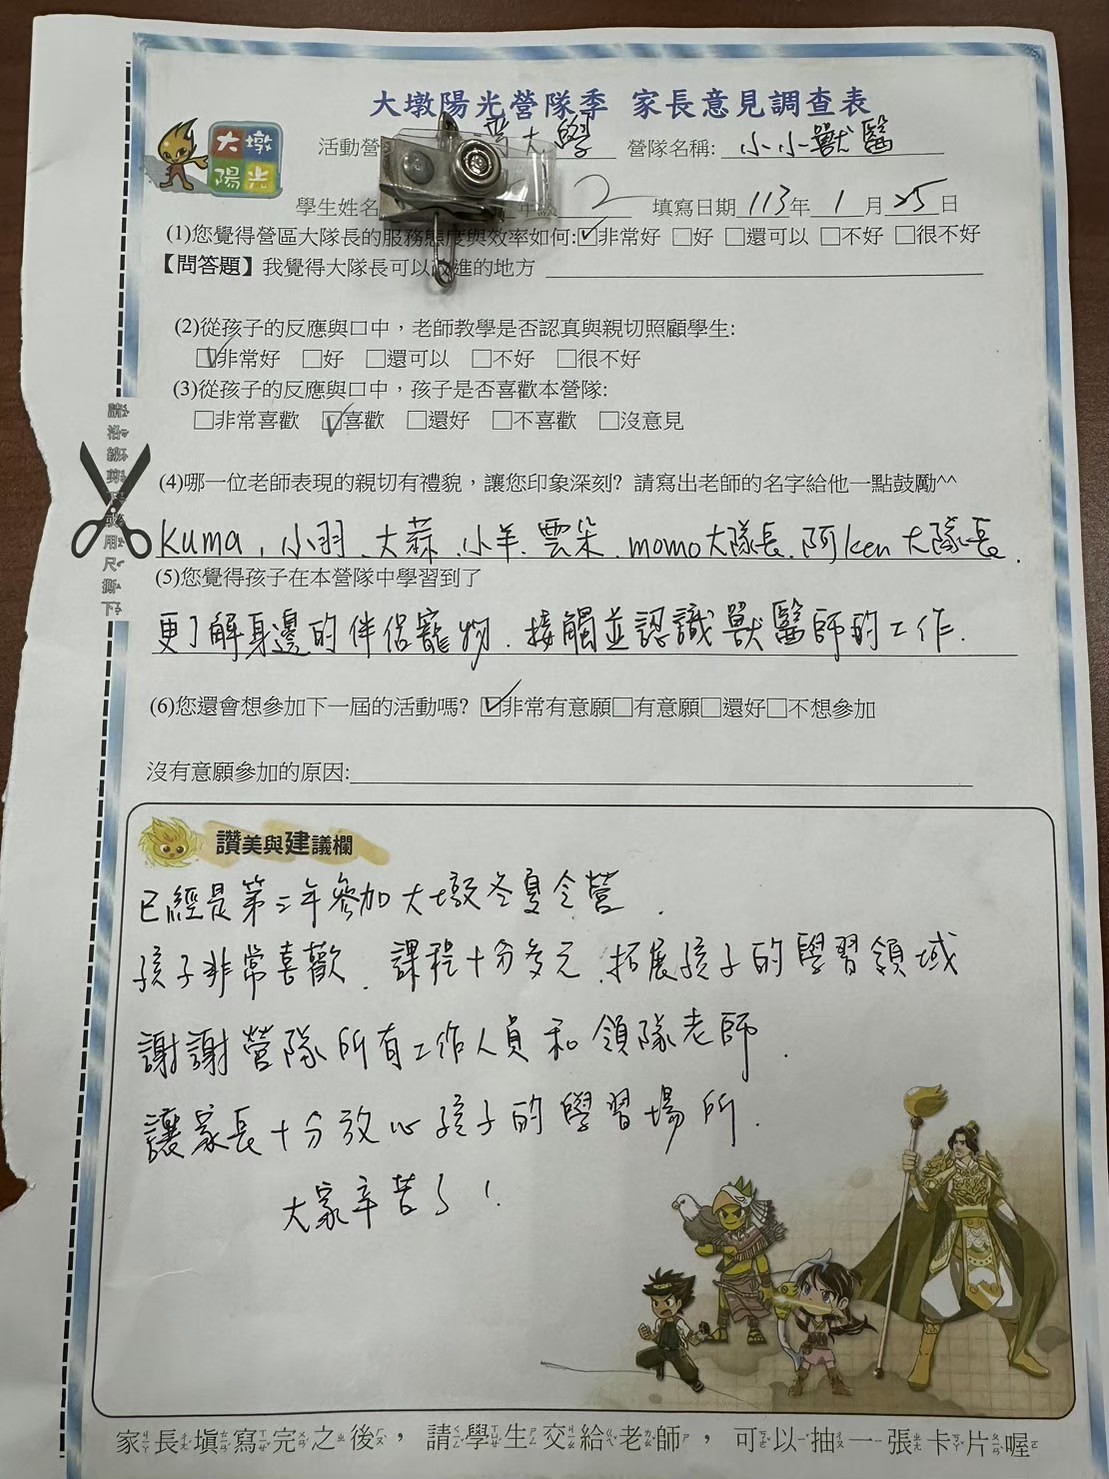 大墩陽光營隊季 家長意見調查表
大墩
陽光
活動營 大學 營隊名稱: 小小獸醫
學生姓名 年級 2 填寫日期 113年 1月 25日
(1)您覺得營區大隊長的服務態度與效率如何:☑非常好 □好 □還可以 □不好 □很不好
【問答題】我覺得大隊長可以改進的地方
(2)從孩子的反應與口中,老師教學是否認真與親切照顧學生:
☑非常好 □好 □還可以 □不好 □很不好
(3)從孩子的反應與口中,孩子是否喜歡本營隊:
□非常喜歡 ☑喜歡 □還好 □不喜歡 □沒意見
(4)哪一位老師表現的親切有禮貌,讓您印象深刻? 請寫出老師的名字給他一點鼓勵^^
Kuma、小羽、大蒜、小羊、雲朵、momo大隊長、阿ken 大隊長.
(5)您覺得孩子在本營隊中學習到了
更了解身邊的伴侶寵物、接觸並認識獸醫師的工作.
(6)您還會想參加下一屆的活動嗎? ☑非常有意願□有意願□還好□不想參加
沒有意願參加的原因:
讚美與建議欄
已經是第二年參加大墩冬夏令營.
孩子非常喜歡、課程十分多元、拓展孩子的學習領域
謝謝營隊所有工作人員和領隊老師.
讓家長十分放心孩子的學習場所.
大家辛苦了!
家長填寫完之後,請學生交給老師,可以抽一張卡片喔
請沿線剪下或用尺撕下